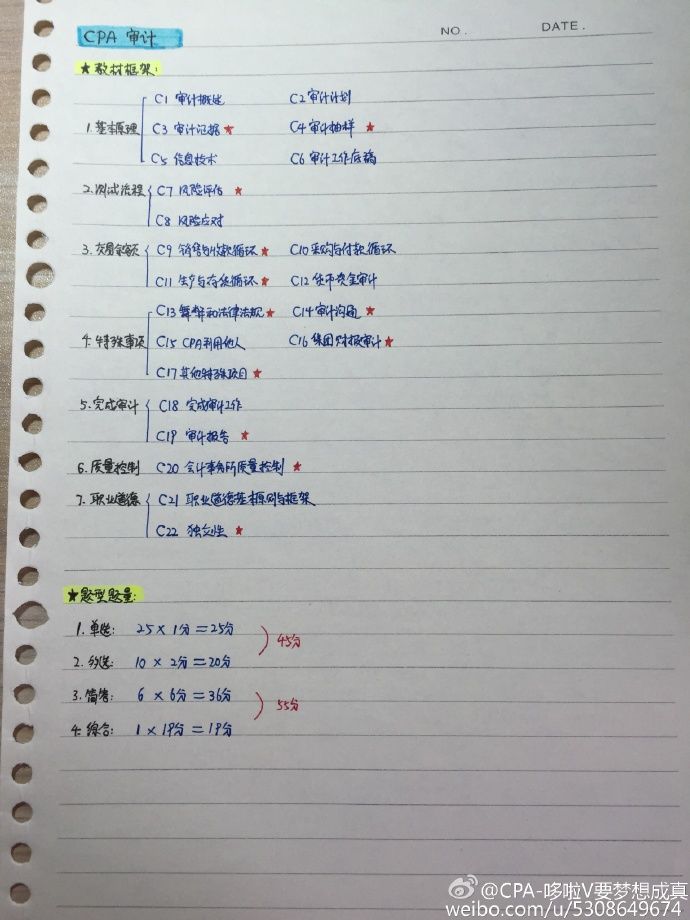 CPA 审计
NO.
DATE.
★教材框架:
C1 审计概述 C2 审计计划
1.基本原理 C3 审计证据★ C4 审计抽样★
C5 信息技术 C6 审计工作底稿
2.测试流程 C7 风险评估★
C8 风险应对
3.交易余额 C9 销售与收款循环★ C10 采购与付款循环
C11 生产与存货循环★ C12 货币资金审计
C13 舞弊和法律法规★ C14 审计沟通★
4.特殊事项 C15 CPA利用他人 C16 集团财报审计★
C17 其他特殊项目★
5.完成审计 C18 完成审计工作
C19 审计报告★
6.质量控制 C20 会计事务所质量控制★
7.职业道德 C21 职业道德基本原则与框架
C22 独立性★
★题型题量:
1.单选: 25×1分=25分
45分
2.多选: 10×2分=20分
3.简答: 6×6分=36分
55分
4.综合: 1×19分=19分
@CPA-哆啦V要梦想成真
weibo.com/u/5308649674